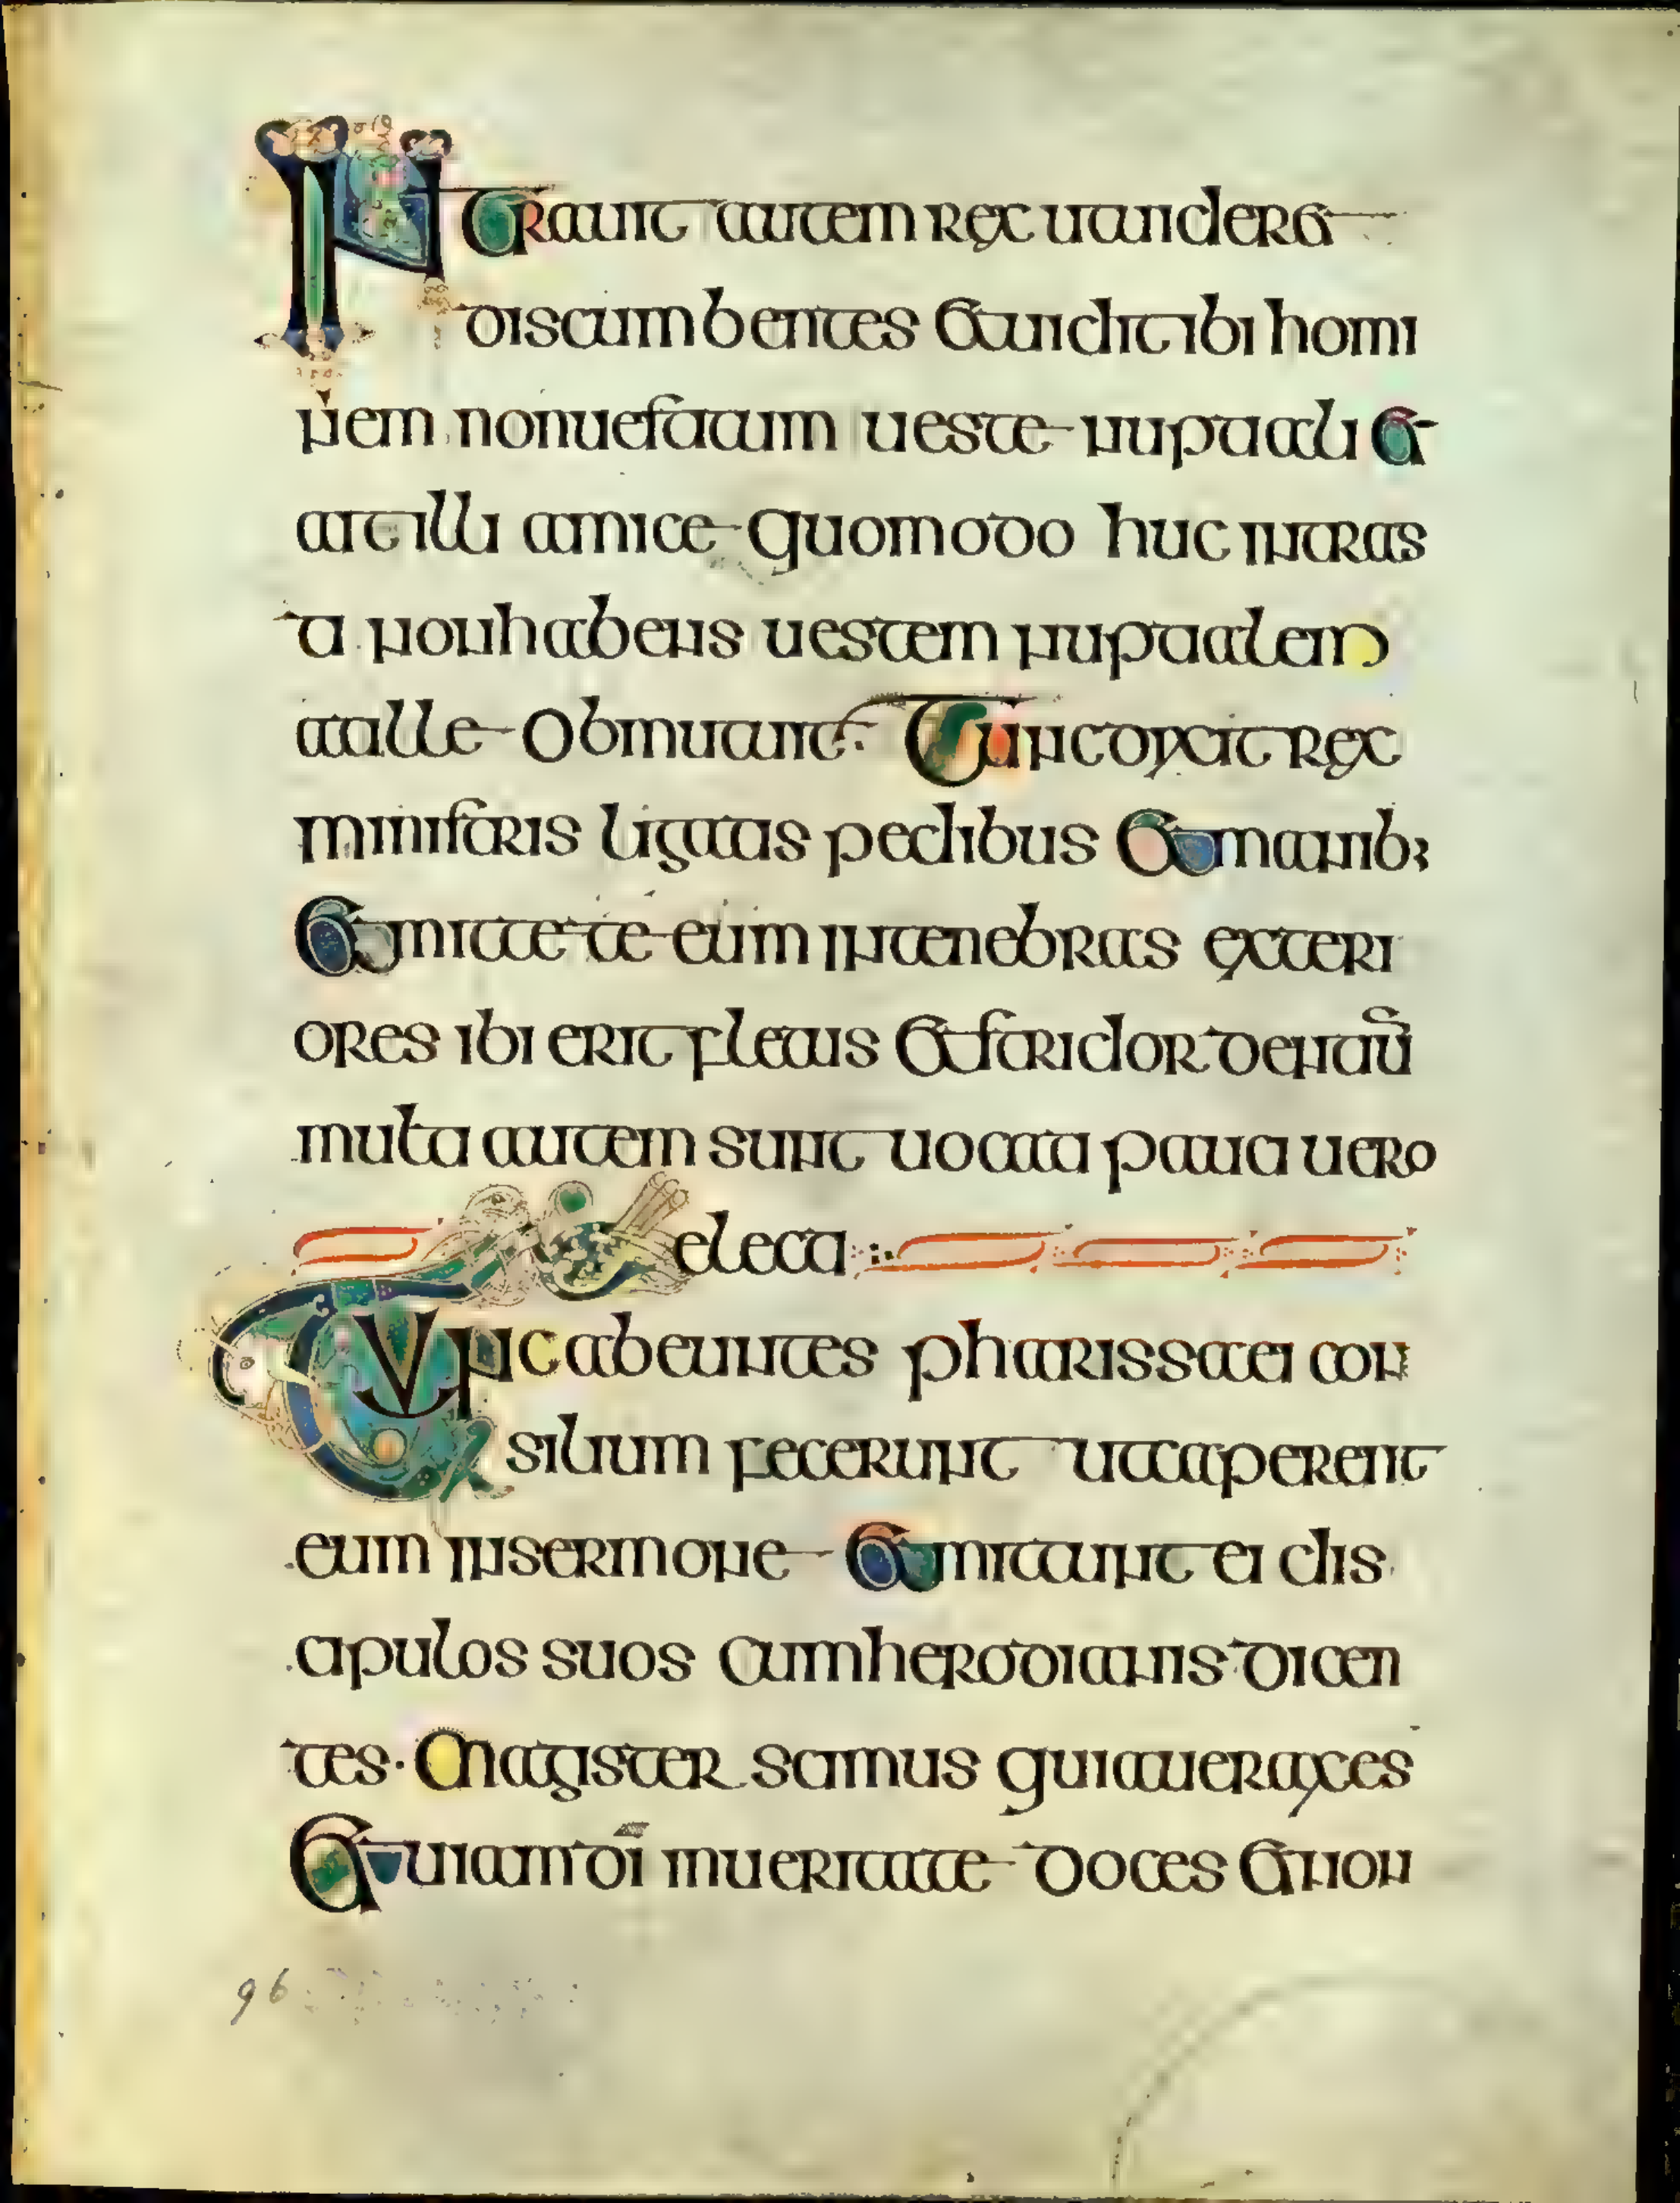 Intrauit autem rex ut uideret
discumbentes et uidit ibi homi
nem non uestitum ueste nuptiali et
ait illi amice quomodo huc intras
ti non habens uestem nuptialem
at ille obmutuit. Tunc dixit rex
ministris ligatis pedibus et manib;
et mittete eum in tenebras exteri
ores ibi erit fletus et stridor dentiū
multi autem sunt uocati pauci uero
electi
Tunc abeuntes pharissaei con
silium fecerunt ut caperent
eum in sermone et mittunt ei dis
cipulos suos cum herodianis dicen
tes. Magister scimus quia uerax es
et uiam dī in ueritate doces et non
96